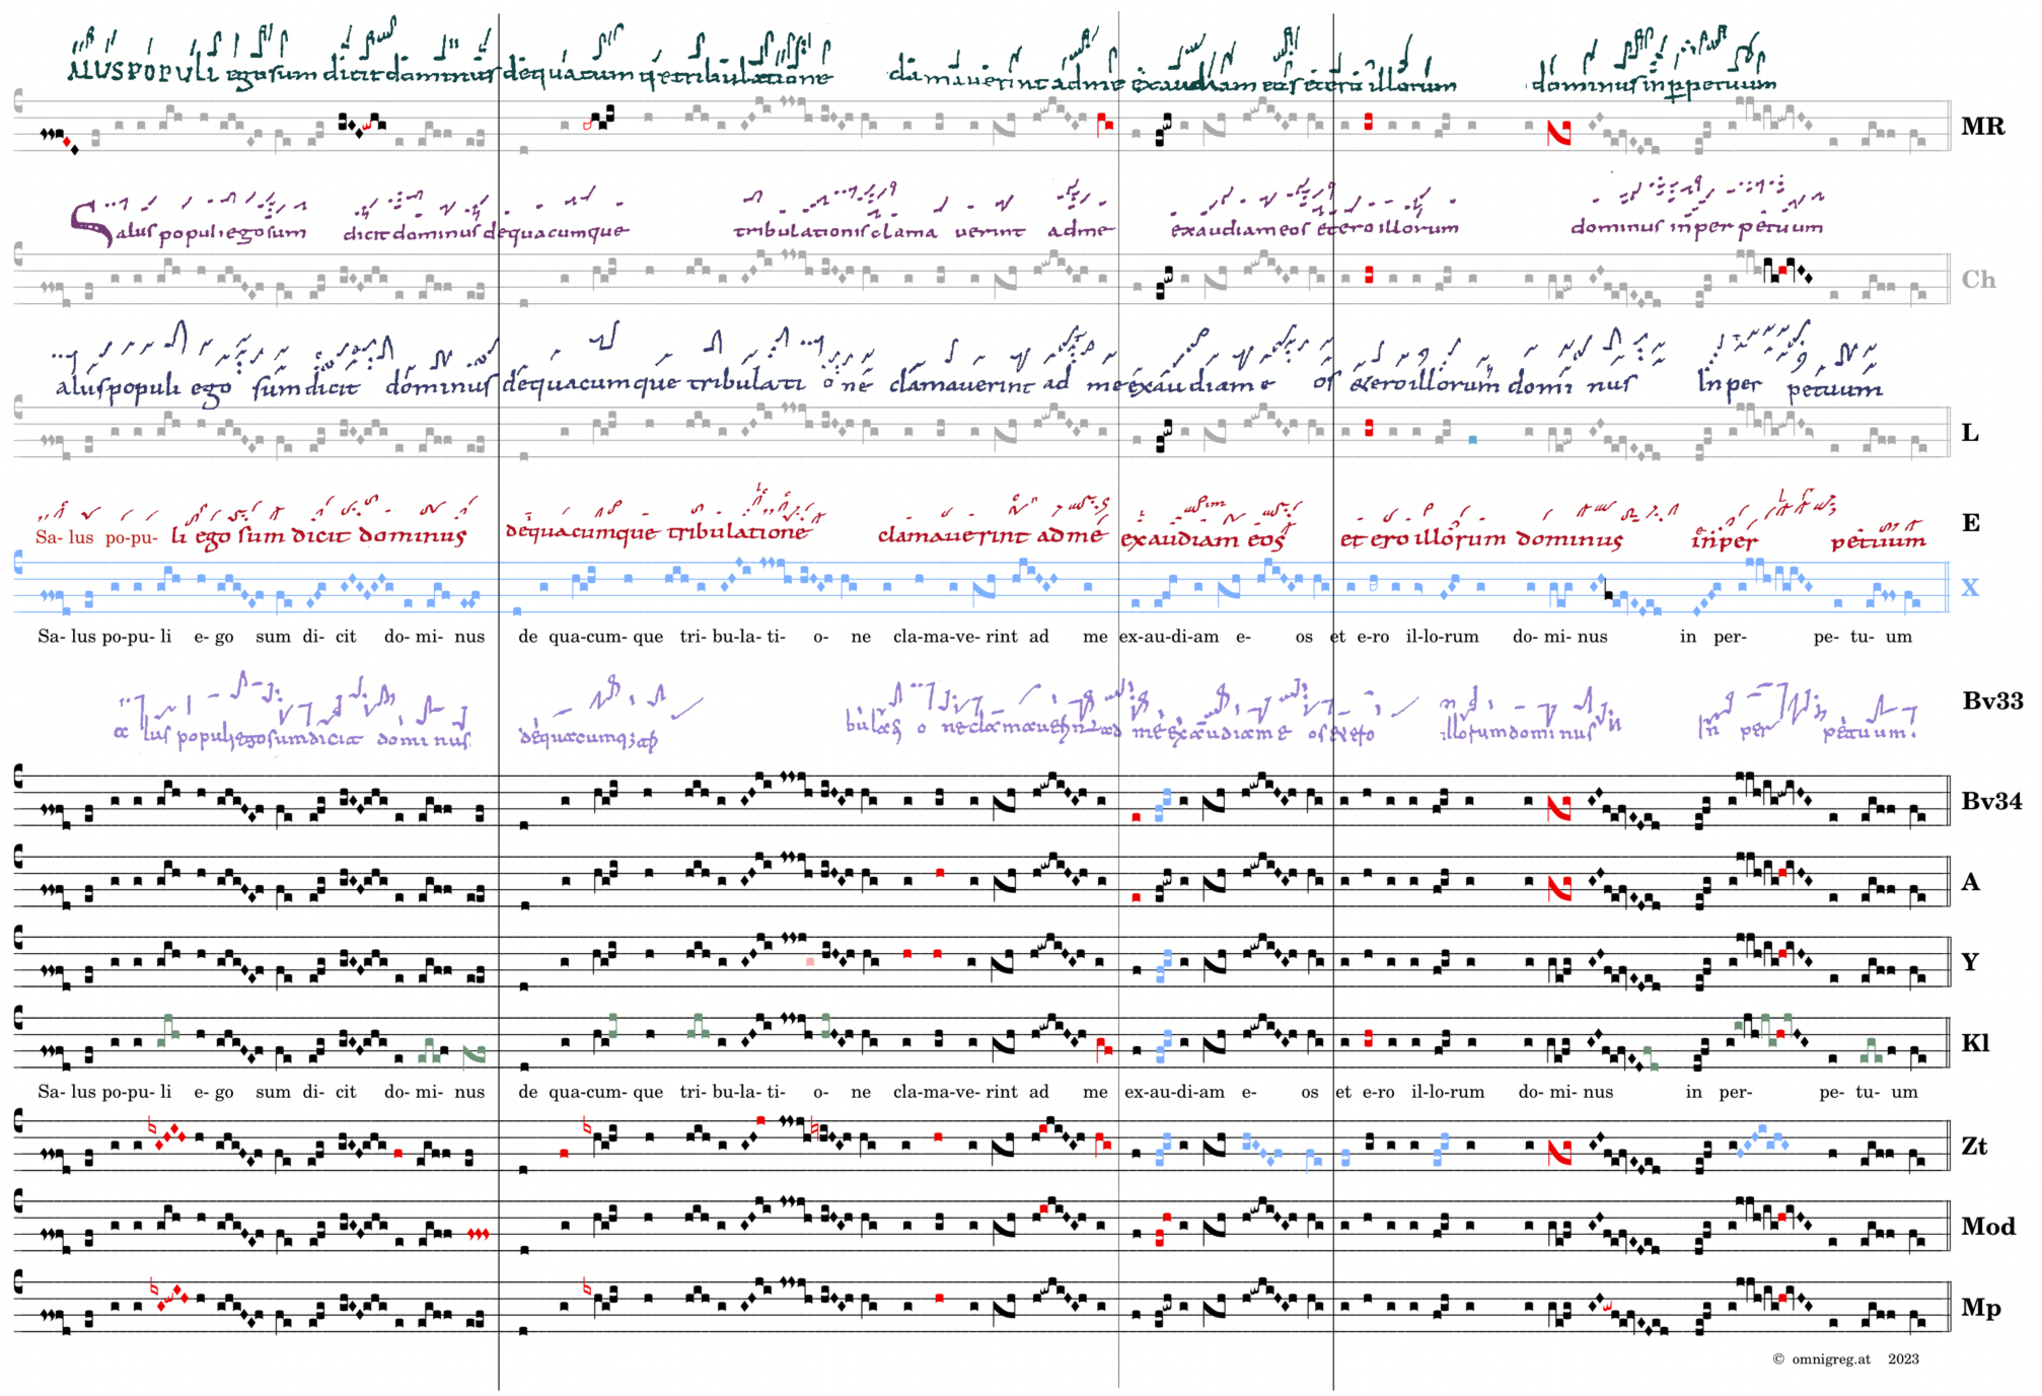 ALUS POPULI ego sum dicit dominus de quacumque tribulatione clamaverint ad me exaudiam eos et ero illorum dominus in perpetuum
MR
Salus populi ego sum dicit dominus de quacumque tribulationis clama verint ad me exaudiam eos et ero illorum dominus in per petuum
Ch
alus populi ego sum dicit dominus de quacumque tribulati o ne clamaverint ad me exaudiam e os et ero illorum domi nus In per petuum
L
Sa- lus po-pu- li ego sum dicit dominus de quacumque tribulatione clamaverint ad me exaudiam eos et ero illorum dominus in per petuum
E
X
Sa- lus po-pu- li e- go sum di- cit do- mi- nus de qua-cum- que tri- bu-la- ti- o- ne cla-ma-ve- rint ad me ex-au-di-am e- os et e-ro il-lo-rum do- mi- nus in per- pe- tu- um
lus populi ego sum dicit dominus
Bv33
Bv34
A
Y
Kl
Sa- lus po-pu- li e- go sum di- cit do- mi- nus de qua-cum- que tri- bu-la- ti- o- ne cla-ma-ve- rint ad me ex-au-di-am e- os et e-ro il-lo-rum do- mi- nus in per- pe- tu- um
Zt
Mod
Mp
© omnigreg.at 2023